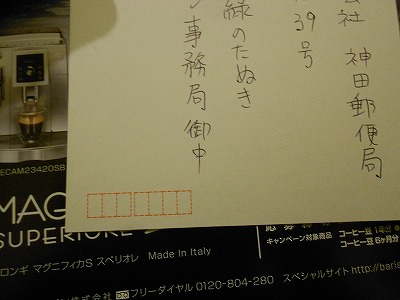 会社 神田郵便局
39号
緑のたぬき
事務局 御中
ECAM23420SB
MAG
SUPERIORE
ロンギ マグニフィカS スペリオレ Made in Italy
フリーダイヤル 0120-804-280 スペシャルサイト http://baris
キャンペーン対象商品
コーヒー豆 1年分
コーヒー豆 6ケ月分